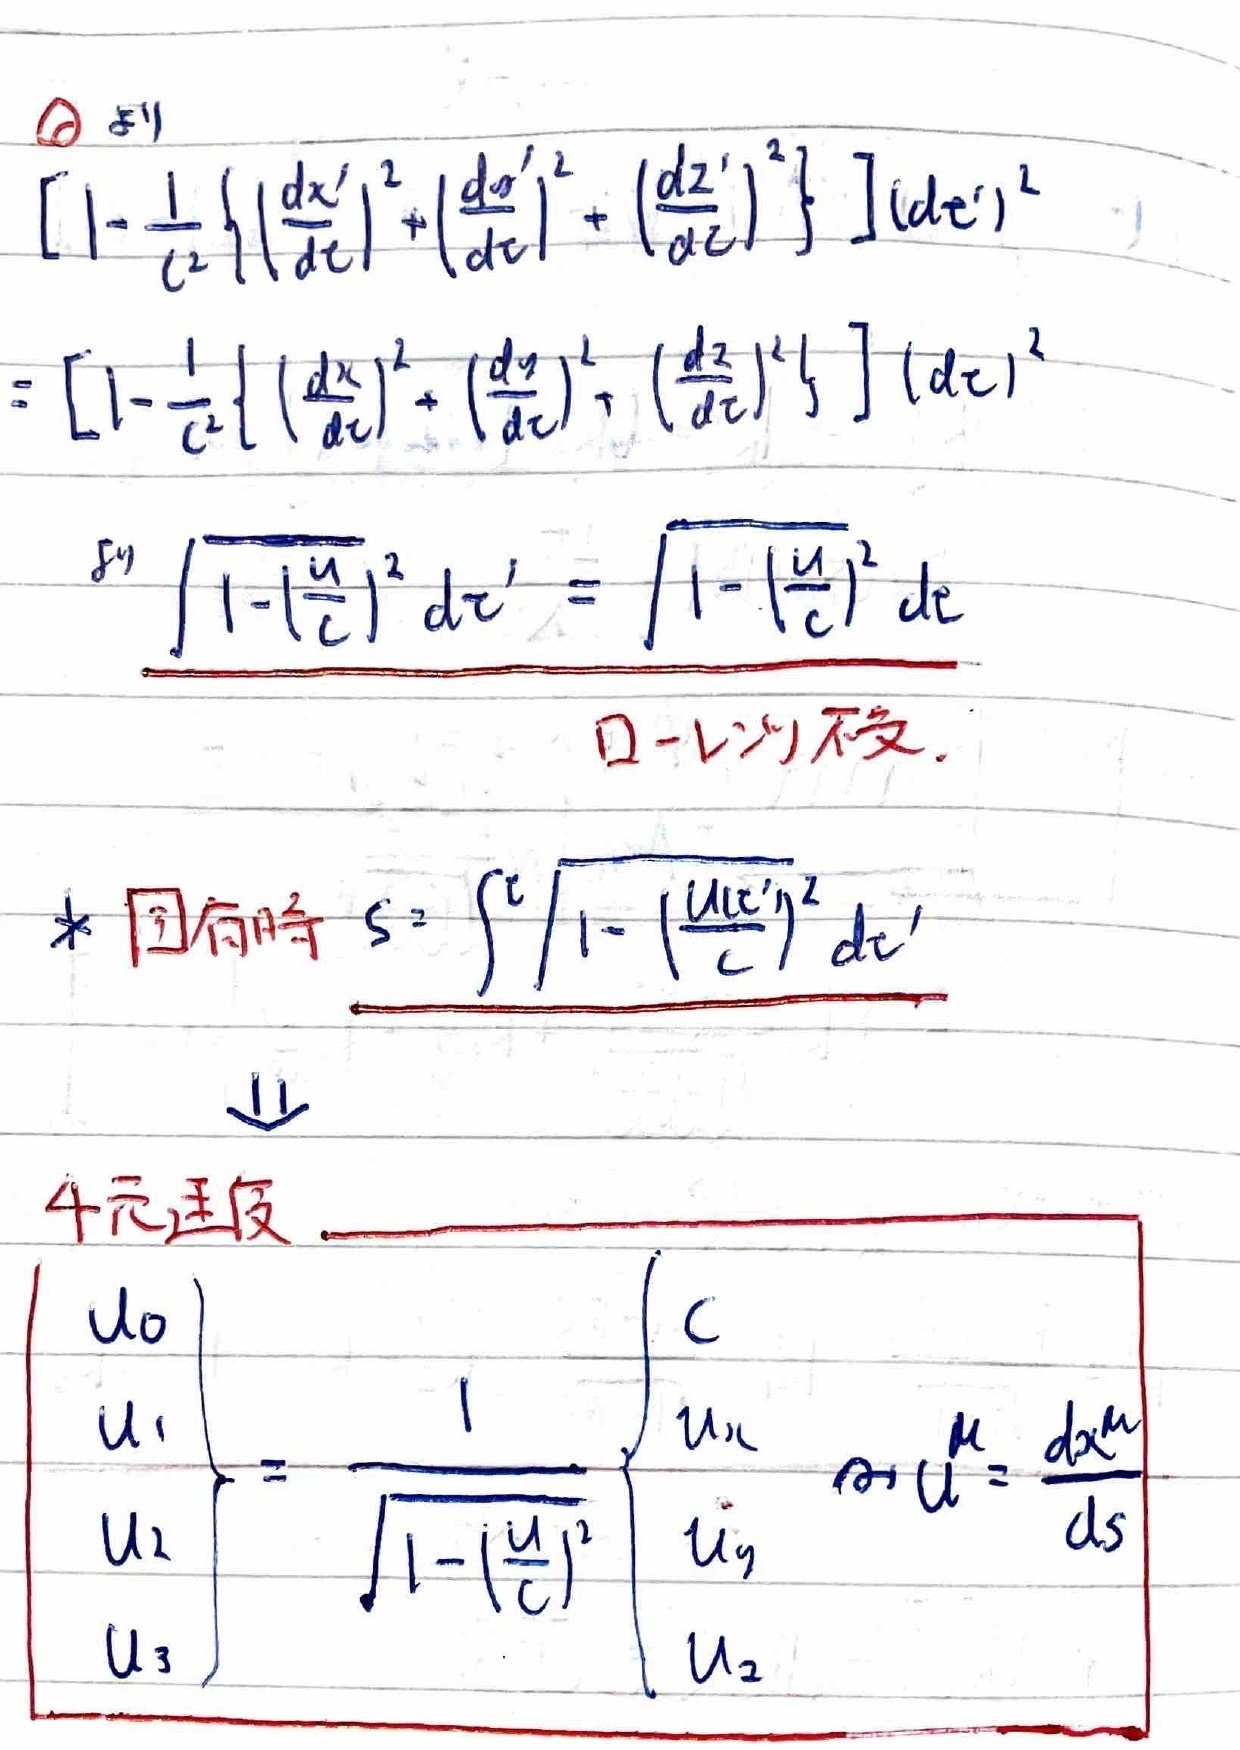 ② より
[1-1/c²{(dx'/dt)²+(dy'/dt)²+(dz'/dt)²}](dt')²
=[1-1/c²{(dx/dt)²+(dy/dt)²+(dz/dt)²}](dt)²
より √1-(u/c)² dt' = √1-(u/c)² dt
ローレンツ不変.
* 固有時 s=∫ᵗ√1-(u(t')/c)² dt'
⇓
4元速度
u0 c
u1 = 1/√1-(u/c)² ux uᵘ = dxᵘ/ds
u2 uy
u3 uz